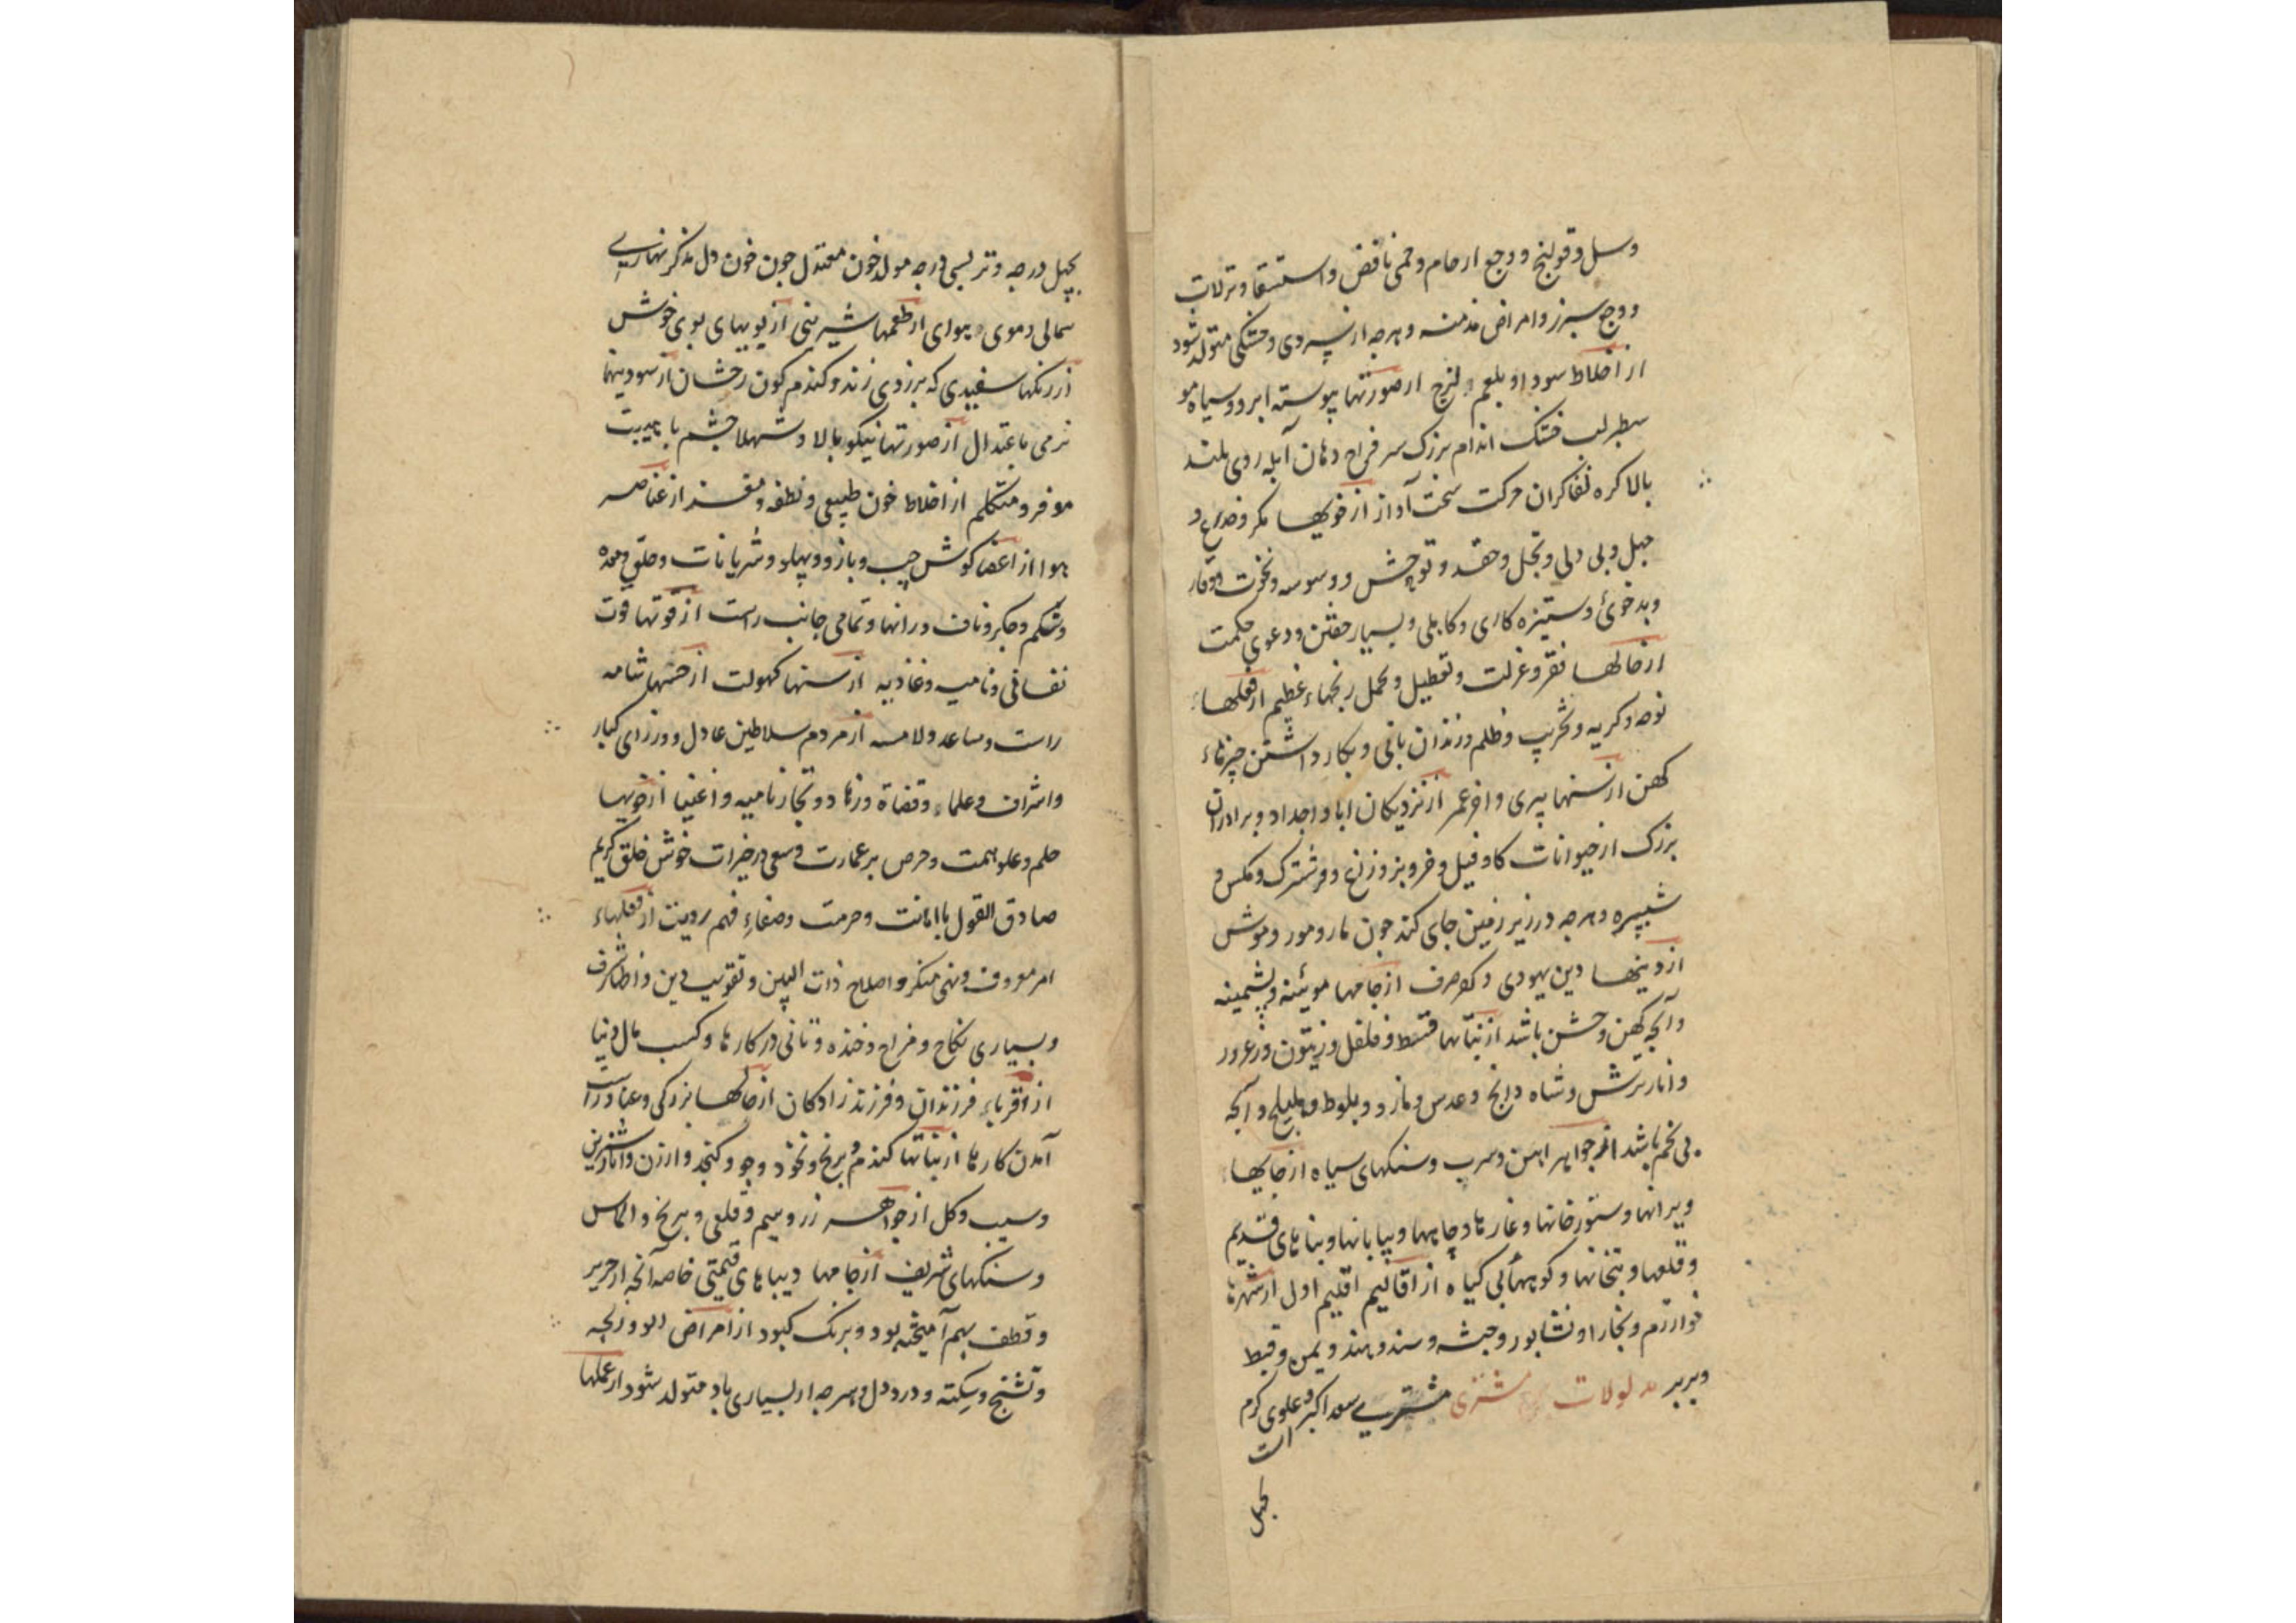 وسل و قولنج و وجع ارحام و حمی ناقض و استسقا و ترلات
و وجع سبرز و امراض مزمنه و هرچه از سردی و خشکی متولد شود
از اخلاط سودا و بلغم لزج از صورتها پیوسته ابرو و سیاه مو
سطبر لب خشک اندام بزرک سر فراخ دهان آبله روی بلند
بالا کره لفا کران حرکت سخت آواز از خویها مکر و خداع و
جهل و بی دلی و بخل و حقد و توحش و وسوسه و نخوت و وقار
و بدخوئی و ستیزه کاری و کاهلی و بسیار خفتن و دعوی حکمت
از حالها فقر و عزلت و تعطیل و تحمل رنجهاء عظیم از فعلهاء
نوحه و کریه و تخریب و ظلم و زندان بانی و بکار داشتن چیزهاء
کهن از سنها پیری و اخر عمر از نزدیکان ابا و اجداد و برادران
بزرک از حیوانات کاو و فیل و خر و بز و زاغ و فرشترک و مکس و
شبپره و هرچه در زیر زمین جای کند چون مار و مور و موش
از دینها دین یهودی و کفر صرف از جامها موئینه و پشمینه
و آنچه کهن و خشن باشد از نباتها قسط و فلفل و زیتون و زعرور
و انار ترش و شاه دانج و عدس و مازو و بلوط و هلیلج و آنچه
بی تخم باشد از جواهر اهن و سرب و سنکهای سیاه از جایها
ویرانها و ستورخانها و غارها و چاهها و بیابانها و بناهای قدیم
و قلعها و بتخانها و کوههاء بی کیاه از اقالیم اقلیم اول از شهرها
خوارزم و بخارا و نشابور و حبشه و سند و هند و یمن و قبط
و بربر مدلولات مشتری مشتری سعد اکبر و علوی کرم
است
بچهل
بچهل درجه و تر بسی درجه مولد خون معتدل چون خون دل مذکر نهاری
شمالی دموی هوای از طعمها شیرینی از بویهای بوی خوش
از رنکها سفیدی که بزردی زند و کندم کون رخشان از سودینها
نرمی باعتدال از صورتها نیکو بالا و شهلا چشم با هیبت
موقر و متکلم از اخلاط خون طبیعی و نطفه و مغز از عناصر
هوا از اعضا کوش چپ و بازو و پهلو و شریانات و حلق و معده
و شکم و جکر و ناف و رانها و تمامی جانب راست از قوتها قوت
نفسانی و نامیه و غاذیه از سنها کهولت از حسها شامه
راست و ساعد و لامسه از مردم سلاطین عادل و وزرای کبار
و اشراف و علماء و قضاة و زهاد و تجار نامیه و اغنیا از خویها
حلم و علو همت و حرص بر عمارت و سعی در خیرات خوش خلق کریم
صادق القول با امانت و حرمت و صفاء فهم رویت از فعلهاء
امر معروف و نهی منکر و اصلاح ذات البین و تقویت دین و اظهار شرف
و بسیاری نکاح و مزاح و خنده و تانی در کارها و کسب مال دنیا
از اقرباء فرزندان و فرزند زادکان از حالها بزرکی و
آمدن کارها از نباتها کندم و برنج و نخود و جو و کنجد و ارزن و انار شیرین
و سیب و کل از جواهر زر و سیم و قلعی و برنج و الماس
و سنکهای شریف از جامها دیباهای قیمتی خاصه آنچه از حریر
و قطف بهم آمیخته بود و برنک کبود از امراض
و تشنج و سکته و درد دل و هرچه از بسیاری باد متولد شود از عملها